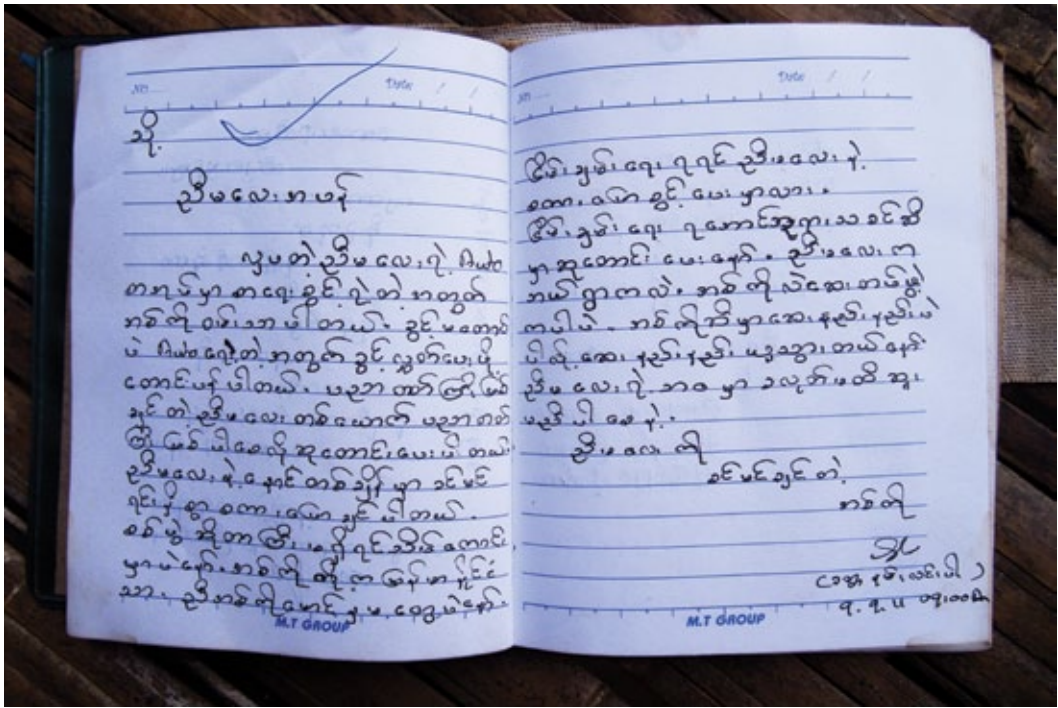 No
Date / /
သို့
ညီမလေးအမန်
လှပတဲ့ညီမလေးရဲ့ Auto
စာအုပ်မှာ စာရေးခွင့်ရတဲ့အတွက်
အစ်ကိုဝမ်းသာပါတယ်။ ခွင့်မတောင်း
ပဲ Auto ရေးတဲ့အတွက် ခွင့်လွှတ်ပေးဖို့
တောင်းပန်ပါတယ်။ ပညာတတ်ကြီးဖြစ်
ချင်တဲ့ညီမလေးတစ်ယောက် ပညာတတ်
ကြီးဖြစ်ပါစေလို့ဆုတောင်းပေးပါတယ်။
ညီမလေးနဲ့နောင်တစ်ချိန်မှာ ခင်မင်
ရင်းနှီးစွာ စကားပြောချင်ပါတယ်။
စစ်ပွဲဆိုတာကြီးမရှိရင်သိပ်ကောင်း
မှာပဲနော်။ အစ်ကိုတို့က မြန်မာနိုင်ငံ
သား ညီအစ်ကိုမောင်နှမတွေပဲနော်။
M.T GROUP
No
Date / /
ငြိမ်းချမ်းရေးရရင်ညီမလေးနဲ့
စကားပြောခွင့်ပေးမှာလား။
ငြိမ်းချမ်းရေး ရအောင်ဘုရားသခင်ဆီ
မှာဆုတောင်းပေးနော်။ ညီမလေးက
ဘယ်ရွာကလဲ။ အစ်ကိုလဲဆေးတပ်ဖွဲ့
ကပါပဲ။ အစ်ကိုဆီမှာဆေးနည်းနည်းပဲ
ပါလို့ဆေးနည်းနည်းယူသွားတယ်နော်
ညီမလေးရဲ့ဘဝမှာ ခလုတ်မထိဆူး
မညိပါစေနဲ့။
ညီမလေးကို
ခင်မင်ချင်တဲ့
အစ်ကို
M.T GROUP